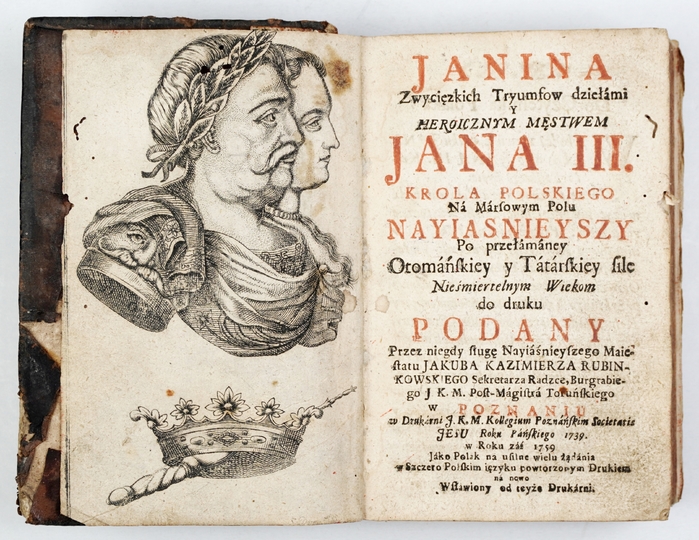 JANINA
Zwycięzkich Tryumfow dziełámi
Y
HEROICZNYM MĘSTWEM
JANA III.
KROLA POLSKIEGO
Ná Mársowym Polu
NAYIASNIEYSZY
Po przełámáney
Otomáńskiey y Tátárskiey sile
Nieśmiertelnym Wiekom
do druku
PODANY
Przez niegdy sługę Nayiáśnieyszego Maie-
statu JAKUBA KAZIMIERZA RUBIN-
KOWSKIEGO Sekretarza Radzce, Burgrabie-
go J K. M. Post-Mágistrá Toruńskiego
w POZNANIU
w Drukárni J. K. M. Kollegium Poznáńskim Societatis
JESU Roku Páńskiego 1739.
w Roku záś 1759
Jáko Polak na usilne wielu żądánia
w Szczero Polskim ięzyku powtorzonym Drukiem
na nowo
Wstawiony od teyże Drukárni.